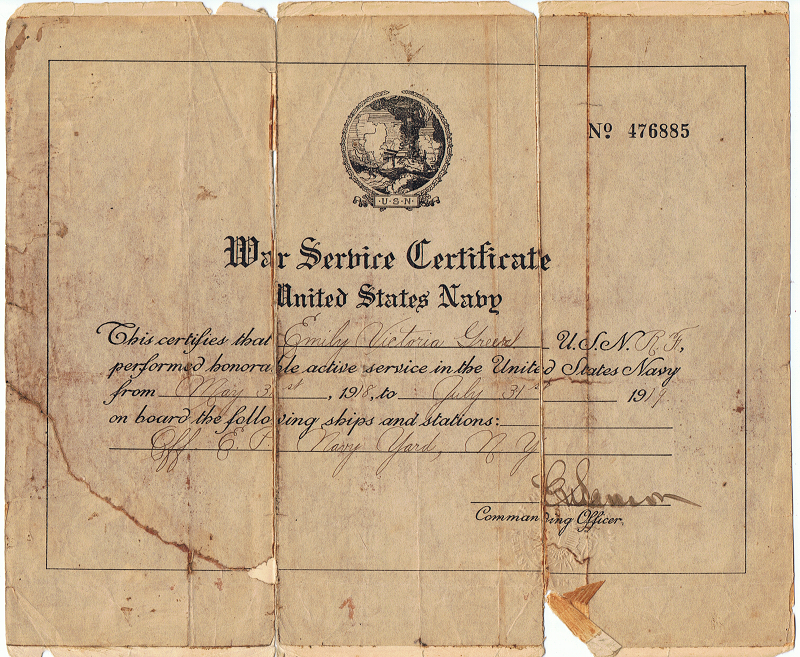 Nº 476885
·U·S·N·
War Service Certificate
United States Navy
This certifies that Emily Victoria U.S.N.R.F.,
performed honorable active service in the United States Navy
from May 31st, 1918, to July 31st 1919
on board the following ships and stations:
Off. Navy Yard, N Y
Commanding Officer.